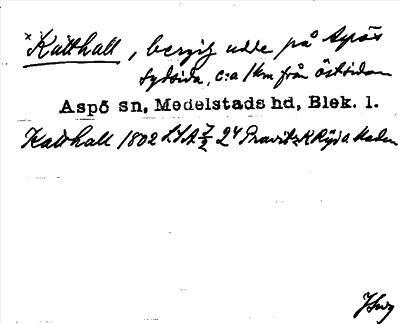 × Katthall, bergig udde på Aspös
sydsida, c:a 1 km från östsidan
Aspö sn, Medelstads hd, Blek. l.
Katthall 1802 LSA 7/2 24 Kaden